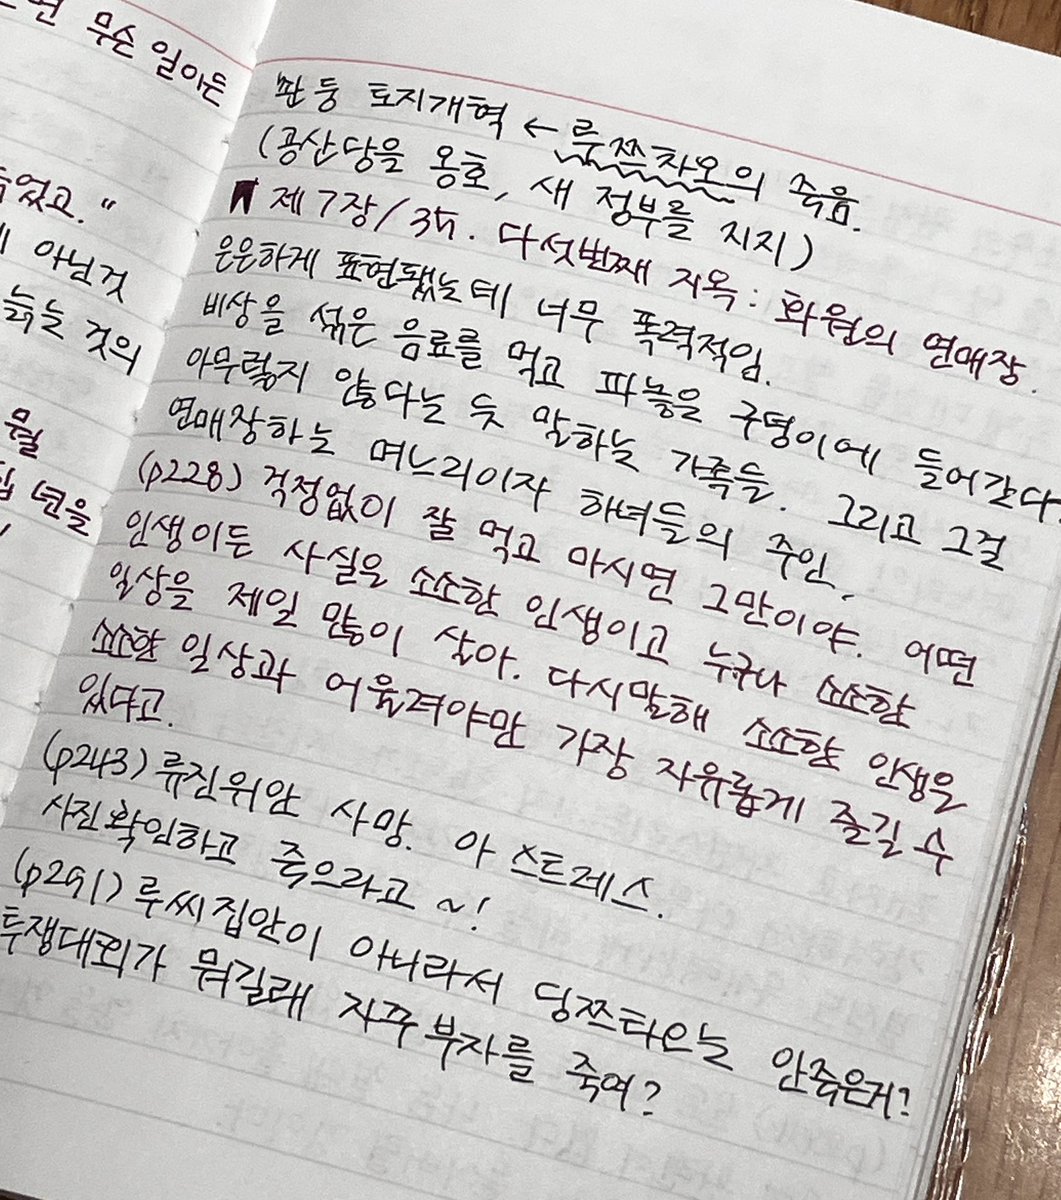 무슨 일이든
었고."
아닌것
늙는 것의
뭘
년을
촨둥 토지개혁 ← 루쯔차오의 죽음.
(공산당을 옹호, 새 정부를 지지)
제7장/35. 다섯번째 지옥: 화원의 연매장.
은은하게 표현됐는데 너무 폭력적임.
비상을 섞은 음료를 먹고 파놓은 구덩이에 들어간다
아무렇지 않다는 듯 말하는 가족들. 그리고 그걸
연매장하는 며느리이자 하녀들의 주인.
(p228) 걱정없이 잘 먹고 마시면 그만이야. 어떤
인생이든 사실은 소소한 인생이고 누구나 소소한
일상을 제일 많이 살아. 다시말해 소소한 인생은
소소한 일상과 어울려야만 가장 자유롭게 즐길 수
있다고.
(p243) 류진위안 사망. 아 스트레스.
사진확인하고 죽으라고 ~!
(p291) 루씨집안이 아니라서 딩쯔타오는 안죽은거?
투쟁대회가 뭐길래 자꾸 부자를 죽여?